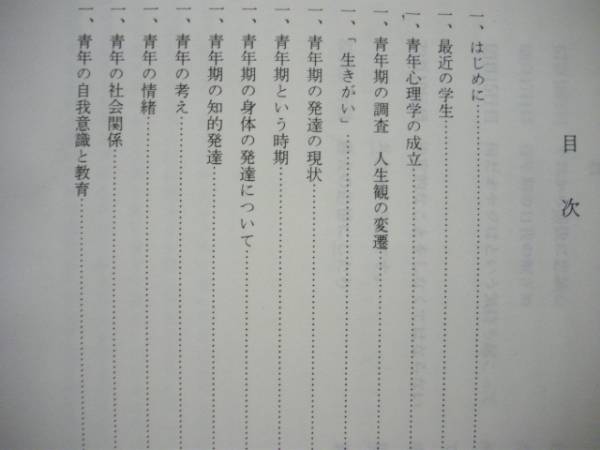 目次
一、はじめに
一、最近の学生
一、青年心理学の成立
一、青年期の調査　人生観の変遷
一、「生きがい」
一、青年期の発達の現状
一、青年期という時期
一、青年期の身体の発達について
一、青年期の知的発達
一、青年の考え
一、青年の情緒
一、青年の社会関係
一、青年の自我意識と教育